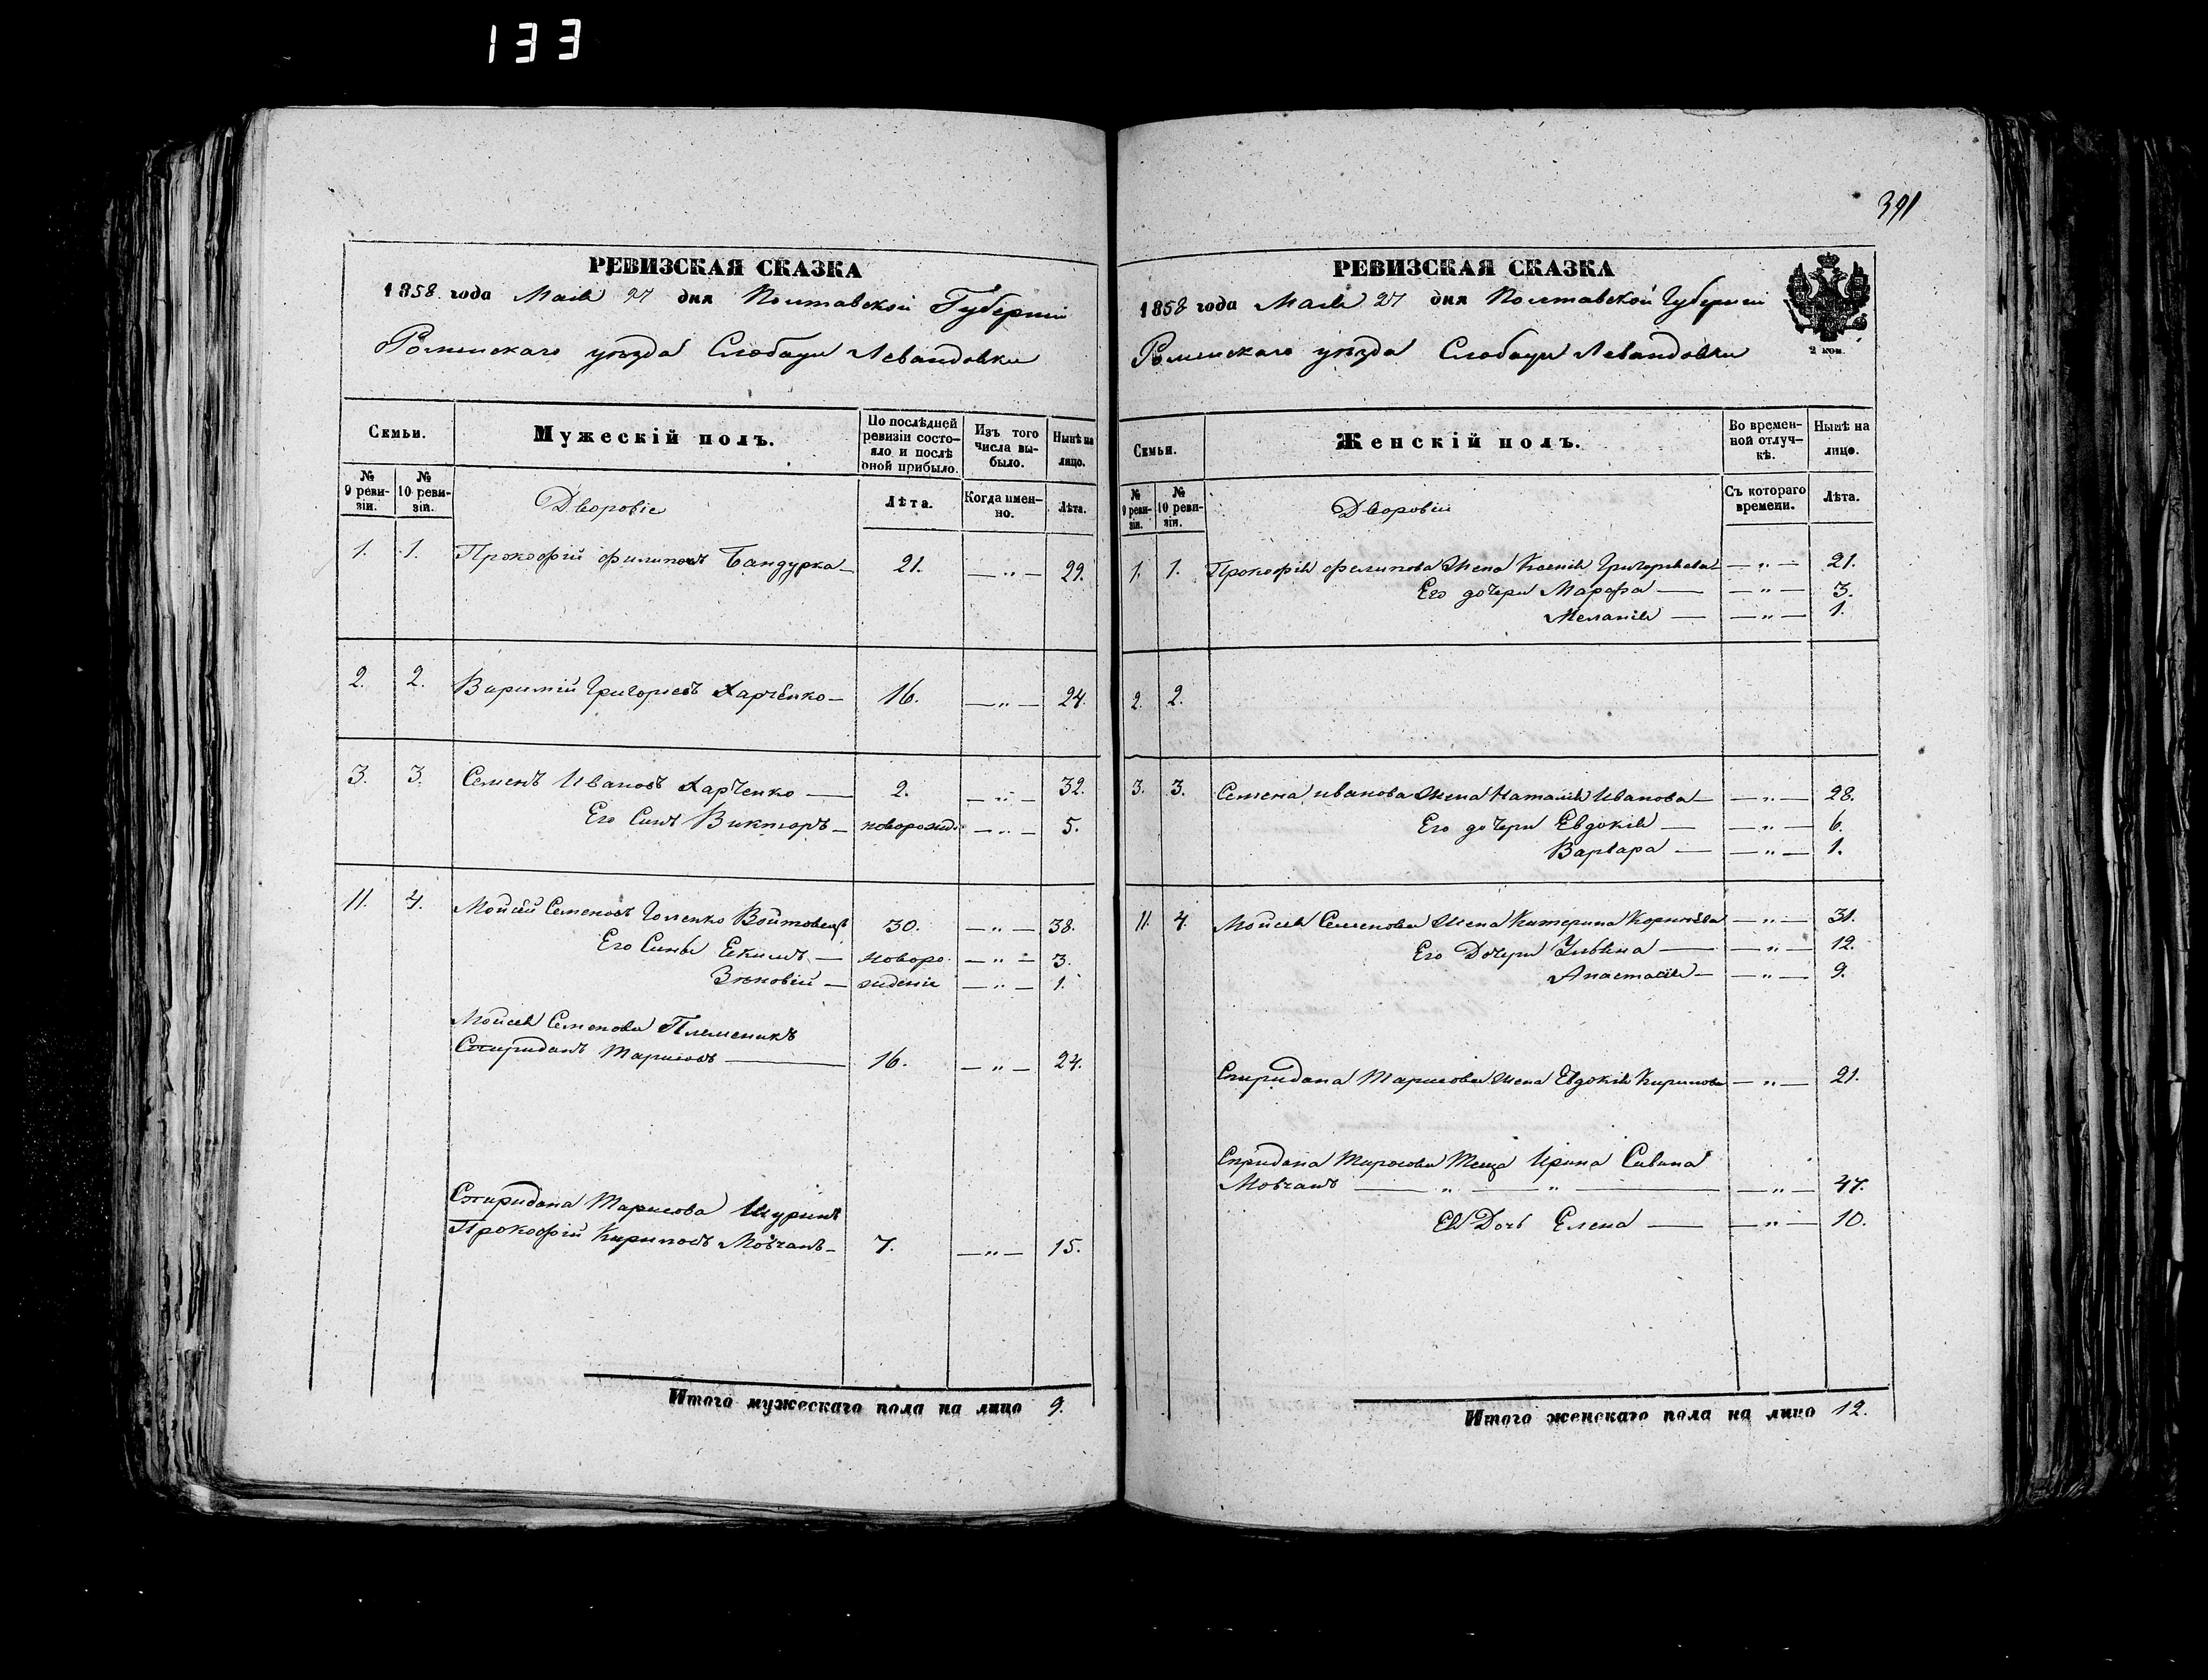 133
391
РЕВИЗСКАЯ СКАЗКА
1858 года Мая 27 дня Полтавской Губерніи
Роменскаго уезда Слободы Левандовки
Семьи.
Мужескій полъ.
По послѣдней ревизіи состояло и послѣ оной прибыло.
Изъ того числа выбыло.
Нынѣ на лицо.
№ 9 ревизіи.
№ 10 ревизіи.
Дворовіе
Лѣта.
Когда именно.
Лѣта.
1. 1. Прокофій Филиповъ Бандурка — 21. — " — 29.
2. 2. Григориевъ Харченко — 16. — " — 24.
3. 3. Семенъ Ивановъ Харченко — 2. — " — 32.
Его Синъ Викторъ — новорожд. — " — 5.
11. 4. Мойсей Семеновъ Голенко 30. — " — 38.
Его Сины Екимъ — новоро — " — 3.
Зѣновій — жденіе — " — 1.
Мойсея Семенова Племеникъ
Спиридонъ Тарасовъ — 16. — " — 24.
Спиридона Тарасова Шуринъ
Прокофій Кириловъ Мовчанъ — 7. — " — 15.
Итого мужескаго пола на лицо 9.
РЕВИЗСКАЯ СКАЗКА
1858 года Мая 27 дня Полтавской Губерніи
Роменскаго уезда Слободы Левандовки
2 коп.
Семьи.
Женскій полъ.
Во временной отлучкѣ.
Нынѣ на лицо.
№ 9 ревизіи.
№ 10 ревизіи.
Дворовіи
Съ котораго времени.
Лѣта.
1. 1. Прокофія Филипова Жена Ксенія Григорьева — " — 21.
Его дочери Марфа — — " — 3.
Меланія — — " — 1.
2. 2.
3. 3. Семена Иванова Жена Наталія Иванова — — " — 28.
Его дочери Евдокія — — " — 6.
Варвара — — " — 1.
11. 4. Мойсея Семенова Жена Катерина Корнѣева — " — 31.
Его Дочери Ульяна — — " — 12.
Анастасія — — " — 9.
Спиридона Тарасова Жена Евдокія Кирилова — " — 21.
Спридона Тарасова Теща Ирина Савина
Мовчанъ — " — " — — " — 47.
Ея Дочь Елена — — " — 10.
Итого женскаго пола на лицо 12.